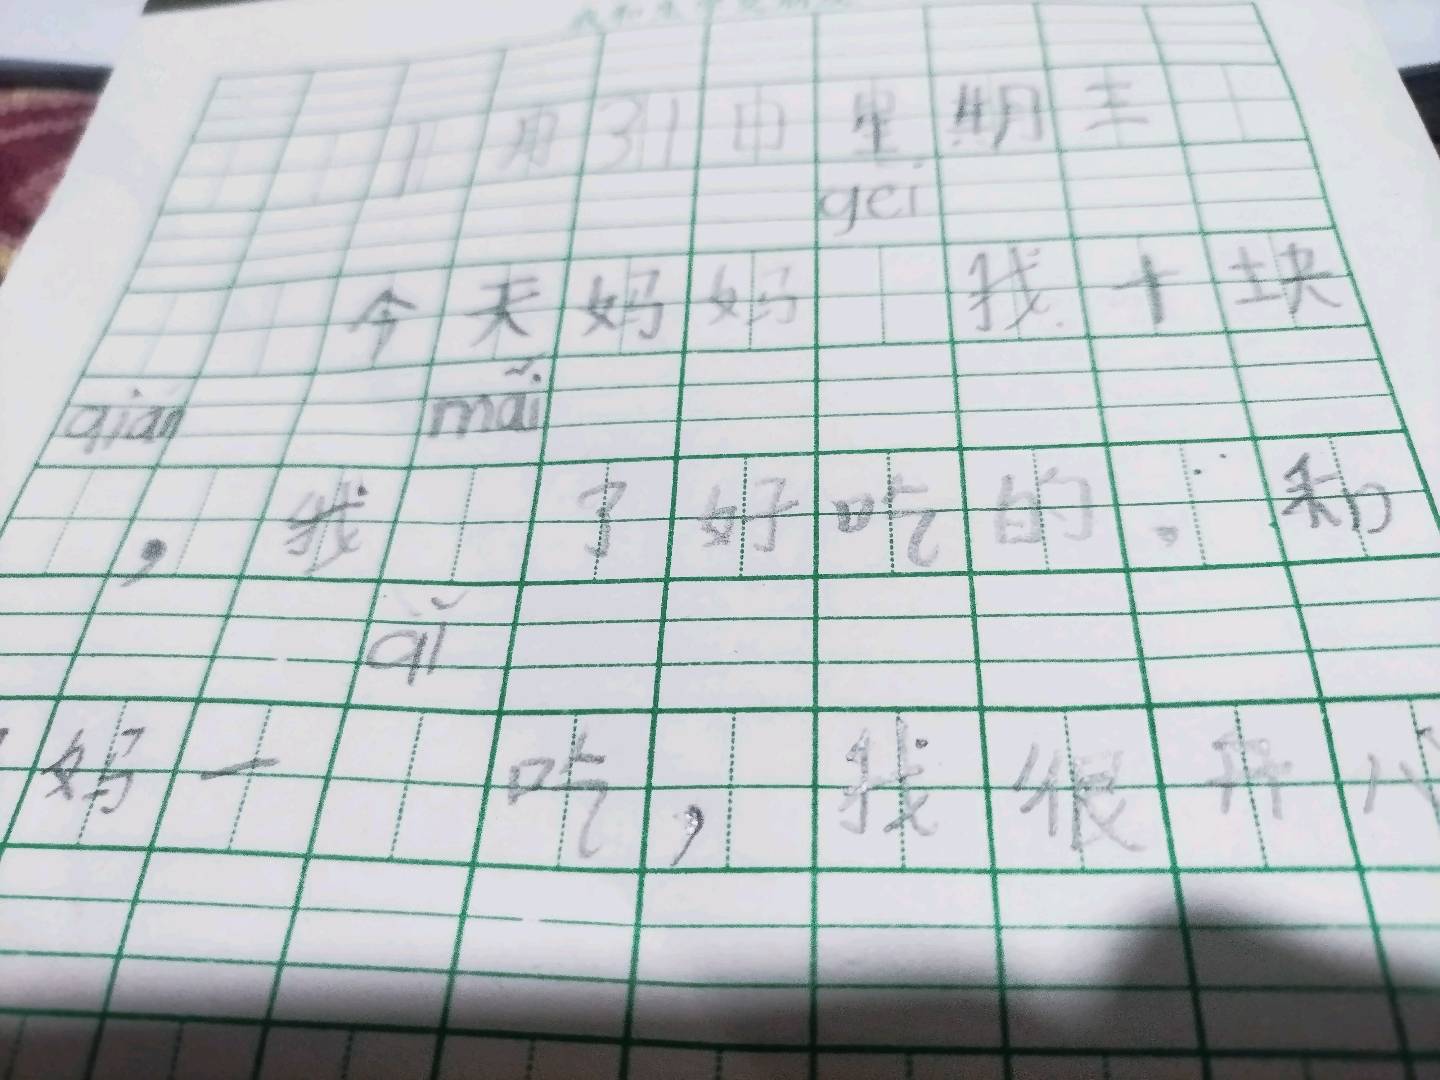 1月31日星期三
gei
今天妈妈 我十块
qián mǎi
，我 了好吃的。和
qǐ
妈一 吃，我很开心